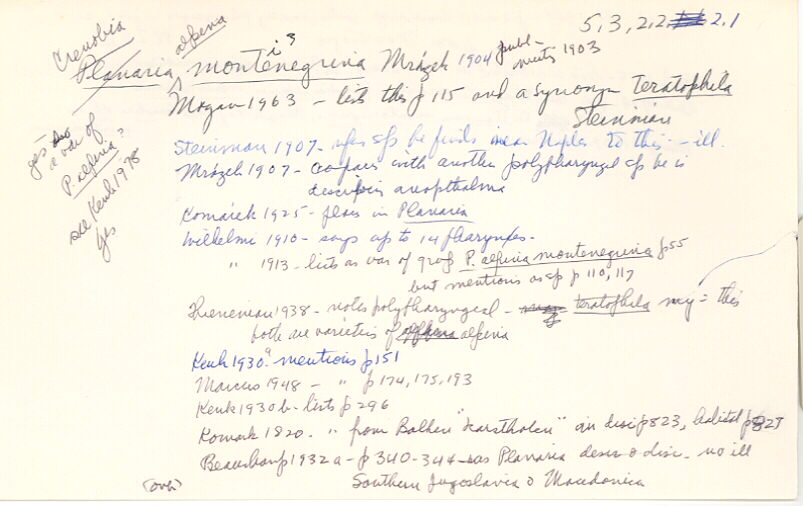 5, 3, 2, 2, 2, 1
Crenobia alpina
Planaria montenegrina Mrázek 1904 publ-
1903
Mogan 1963 - lists this p 115 and a synonym Teratophela
Steinman
yes
a var of
P. alpina?
see Kenk 1978
yes
Steinman 1907 - refers sp he finds near Naples to this - ill.
Mrázek 1907 - compares with another polypharyngel sp he is
describing anopthalma
Komárek 1925 - places in Planaria
Wilhelmi 1910 - says up to 14 pharynxes.
" 1913 - lists as var of P. alpina montenegrina p55
but mentions as sp p 110, 117
Thieneman 1938 - notes polypharyngeal - teratophela may = this
both are varieties of alpina
Kenk 1930a - mentions p 151
Marcus 1948 - " p 174, 175, 193
Kenk 1930 b - lists p 296
Komark 1920 - " from Balken "karstholen" disc p 823, habitat p 827
Beauchamp 1932 a - p 340-344 as Planaria descr & disc - no ill
Southern Jugoslavia & Macedonica
(over)